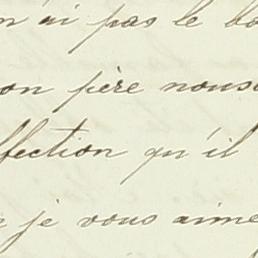 n'ai pas le bo
on père nous
ffection qu'il
je vous aime